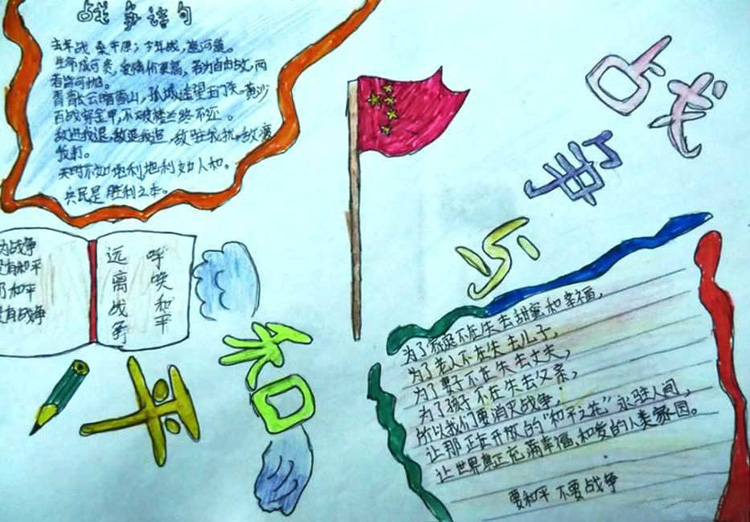 战争诗句
去年战 桑干原；今年战，葱河道。
生命诚可贵，爱情价更高，若为自由故，两
者皆可抛。
青海长云暗雪山，孤城遥望玉门关。黄沙
百战穿金甲，不破楼兰终不还。
敌进我退，敌驻我扰，敌疲
我打。
天时不如地利地利不如人和。
兵民是胜利之本。
为战争
没有和平
为和平
没有战争
呼唤和平
远离战争
战争与
和平
为了家庭不在失去甜蜜和幸福，
为了老人不在失去儿子，
为了妻子不在失去丈夫，
为了孩子不在失去父亲，
所以我们要消灭战争，
让那正在开放的“和平之花”永驻人间，
让世界真正充满幸福和爱的人类家园。
要和平 不要战争